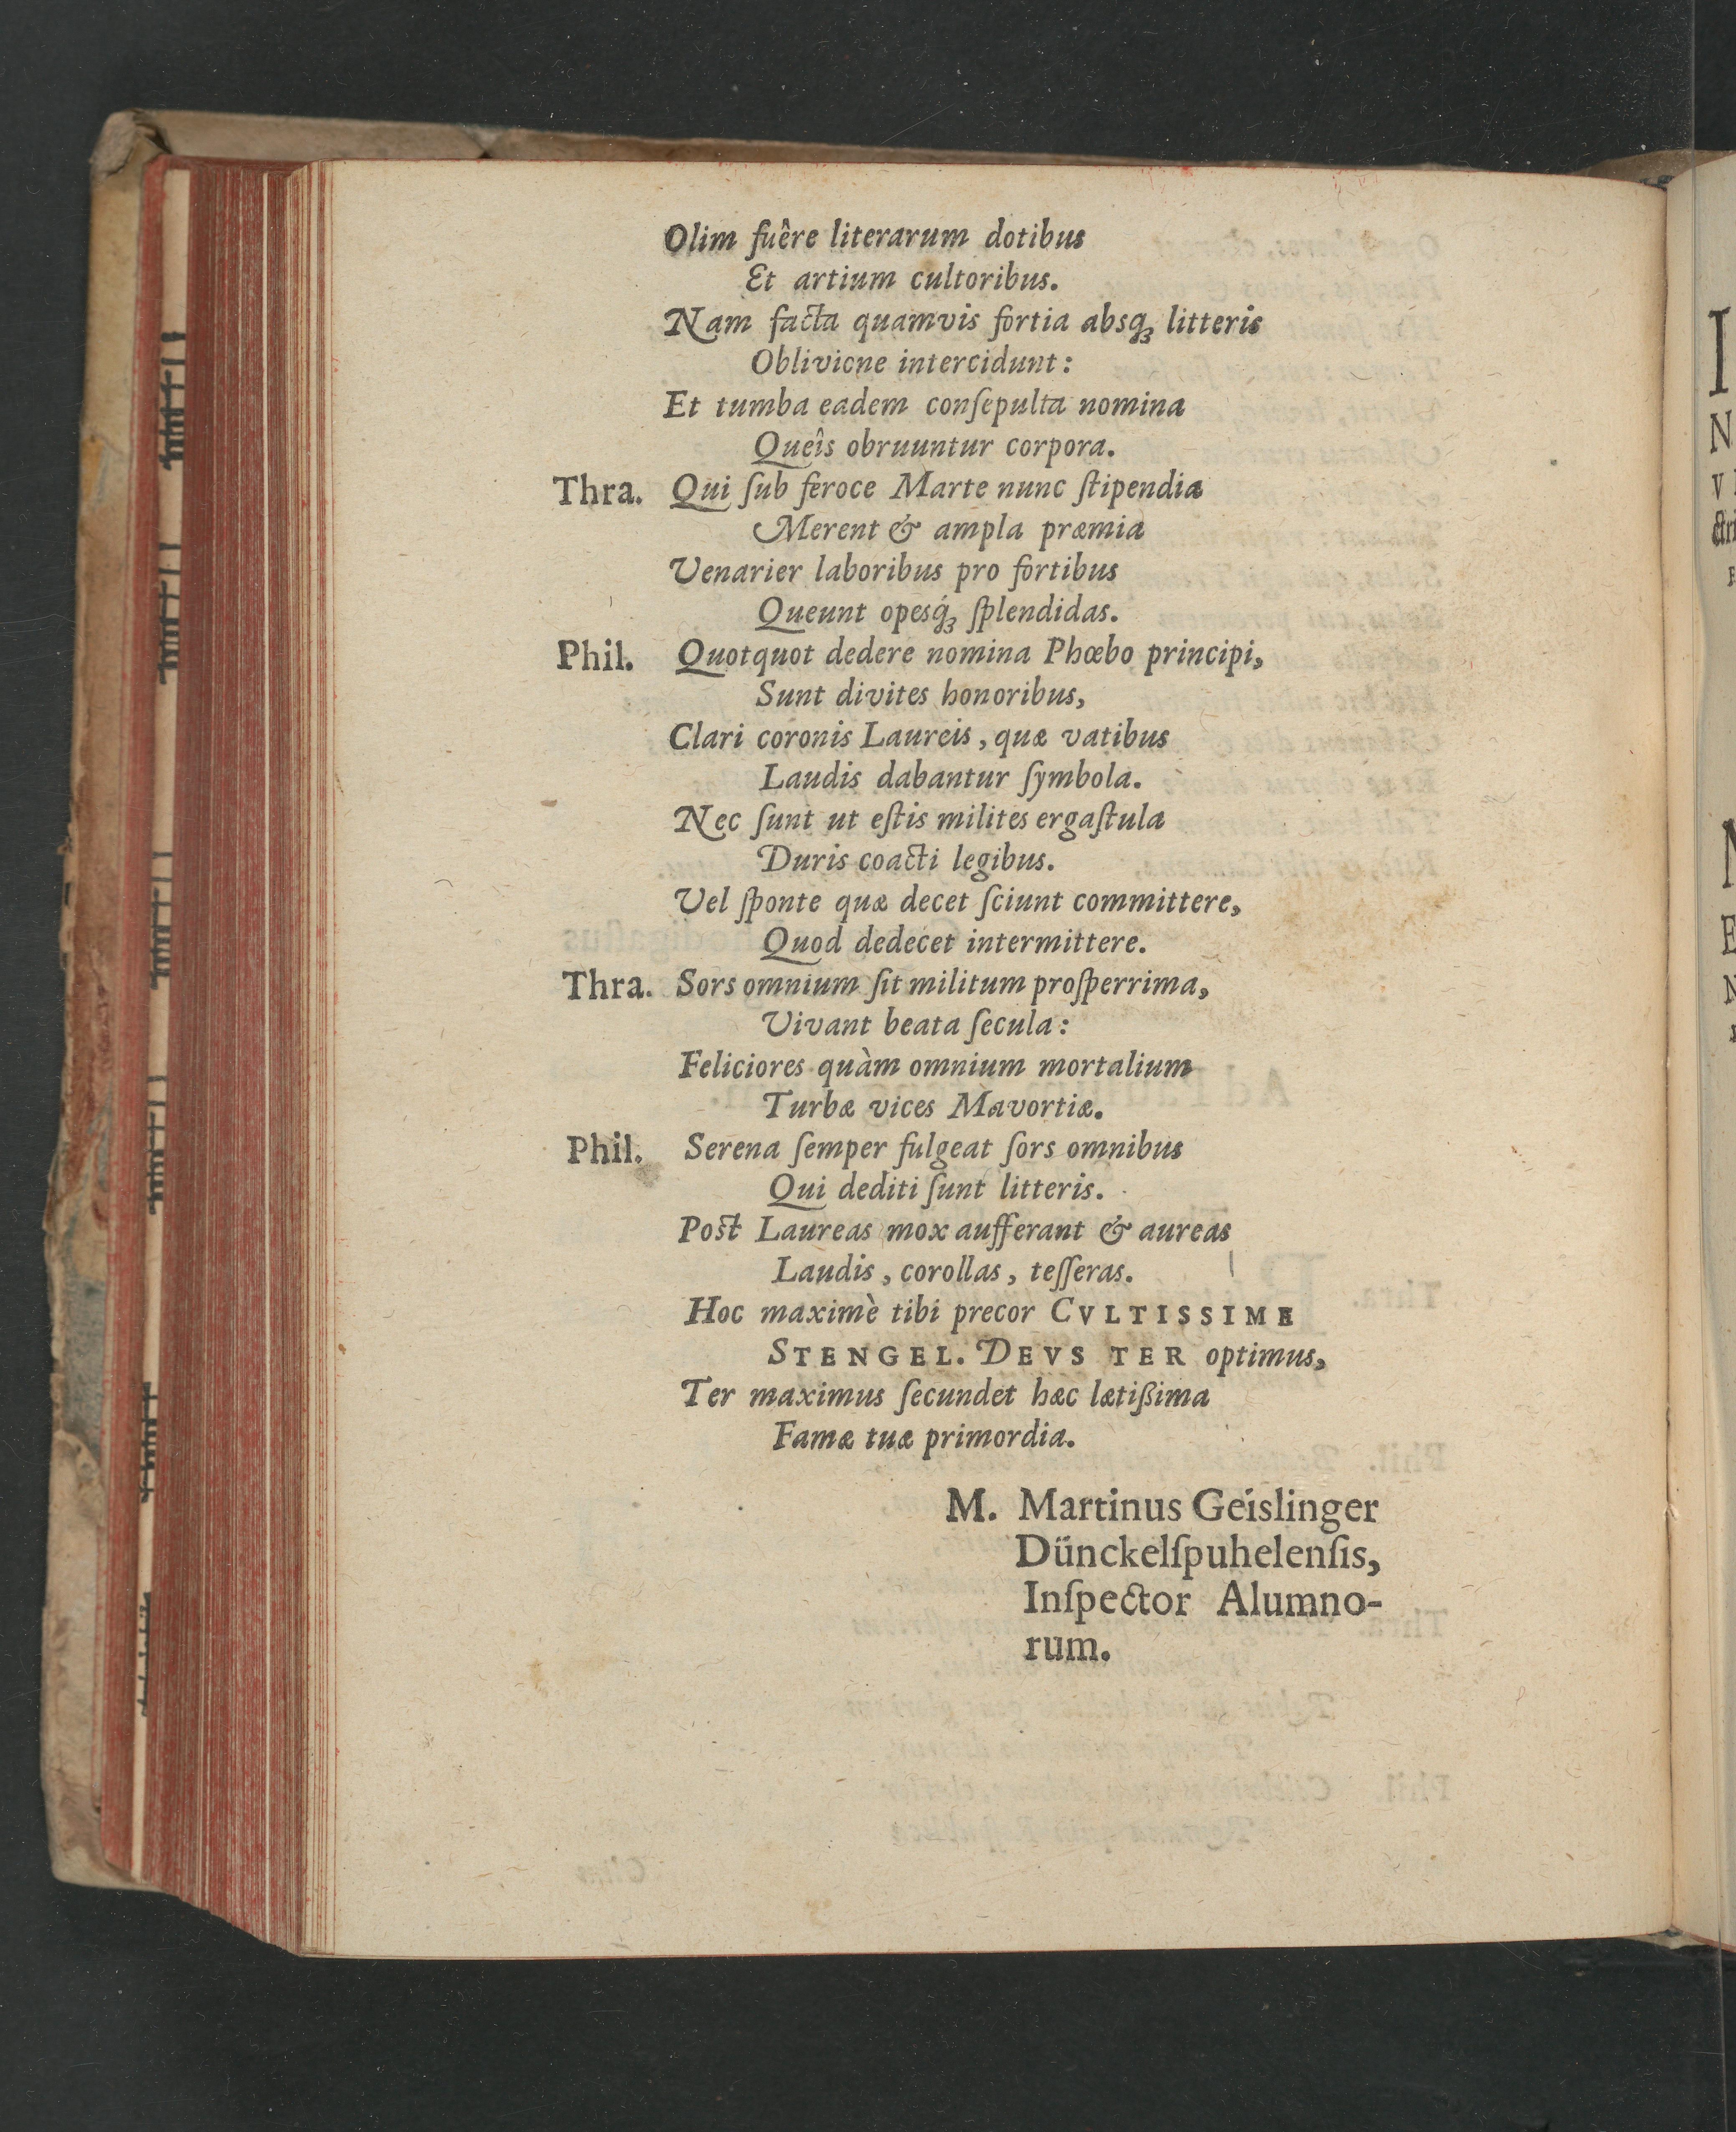 Olim fuêre literarum dotibus
Et artium cultoribus.
Nam facta quamvis fortia absqꝫ litteris
Oblivione intercidunt:
Et tumba eadem conſepulta nomina
Queîs obruuntur corpora.
Thra. Qui ſub feroce Marte nunc ſtipendia
Merent & ampla præmia
Venarier laboribus pro fortibus
Queunt opesq́ꝫ ſplendidas.
Phil. Quotquot dedere nomina Phœbo principi,
Sunt divites honoribus,
Clari coronis Laureis, quæ vatibus
Laudis dabantur ſymbola.
Nec ſunt ut eſtis milites ergaſtula
Duris coacti legibus.
Vel ſponte quæ decet ſciunt committere,
Quod dedecet intermittere.
Thra. Sors omnium ſit militum proſperrima,
Vivant beata ſecula:
Feliciores quàm omnium mortalium
Turbæ vices Mavortiæ.
Phil. Serena ſemper fulgeat ſors omnibus
Qui dediti ſunt litteris.
Poſt Laureas mox aufferant & aureas
Laudis, corollas, teſſeras.
Hoc maximè tibi precor CVLTISSIME
STENGEL. DEVS TER optimus,
Ter maximus ſecundet hæc lætißima
Famæ tuæ primordia.
M. Martinus Geislinger
Dünckelſpuhelenſis,
Inſpector Alumno-
rum.